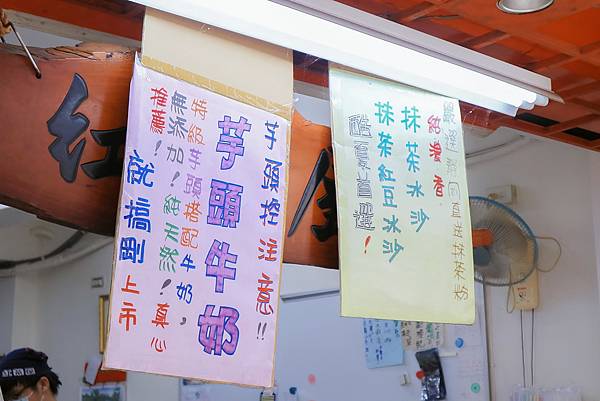 芋頭控注意!!
芋頭牛奶
特級芋頭搭配牛奶,
無添加!純天然!真心
推薦!就搞剛上市
嚴選靜岡直送抹茶粉
純濃香
抹茶冰沙
抹茶紅豆冰沙
酷夏首選!
紅